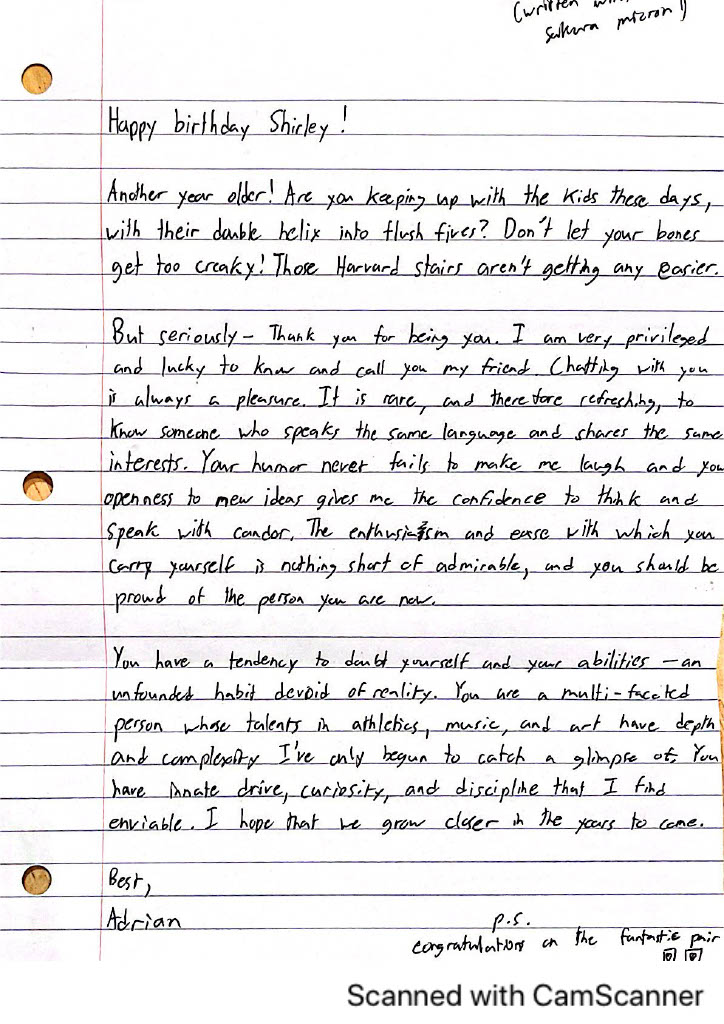 (written with
sakura micron!)
Happy birthday Shirley!
Another year older! Are you keeping up with the kids these days,
with their double helix into flush fives? Don't let your bones
get too creaky! Those Harvard stairs aren't getting any easier.
But seriously - Thank you for being you. I am very privileged
and lucky to know and call you my friend. Chatting with you
is always a pleasure. It is rare, and therefore refreshing, to
know someone who speaks the same language and shares the same
interests. Your humor never fails to make me laugh and you
openness to new ideas gives me the confidence to think and
speak with candor. The enthusiasm and ease with which you
carry yourself is nothing short of admirable, and you should be
proud of the person you are now.
You have a tendency to doubt yourself and your abilities - an
unfounded habit devoid of reality. You are a multi-faceted
person whose talents in athletics, music, and art have depth
and complexity I've only begun to catch a glimpse of. You
have innate drive, curiosity, and discipline that I find
enviable. I hope that we grow closer in the years to come.
Best,
Adrian
p.s.
congratulations on the fantastic pair
Scanned with CamScanner